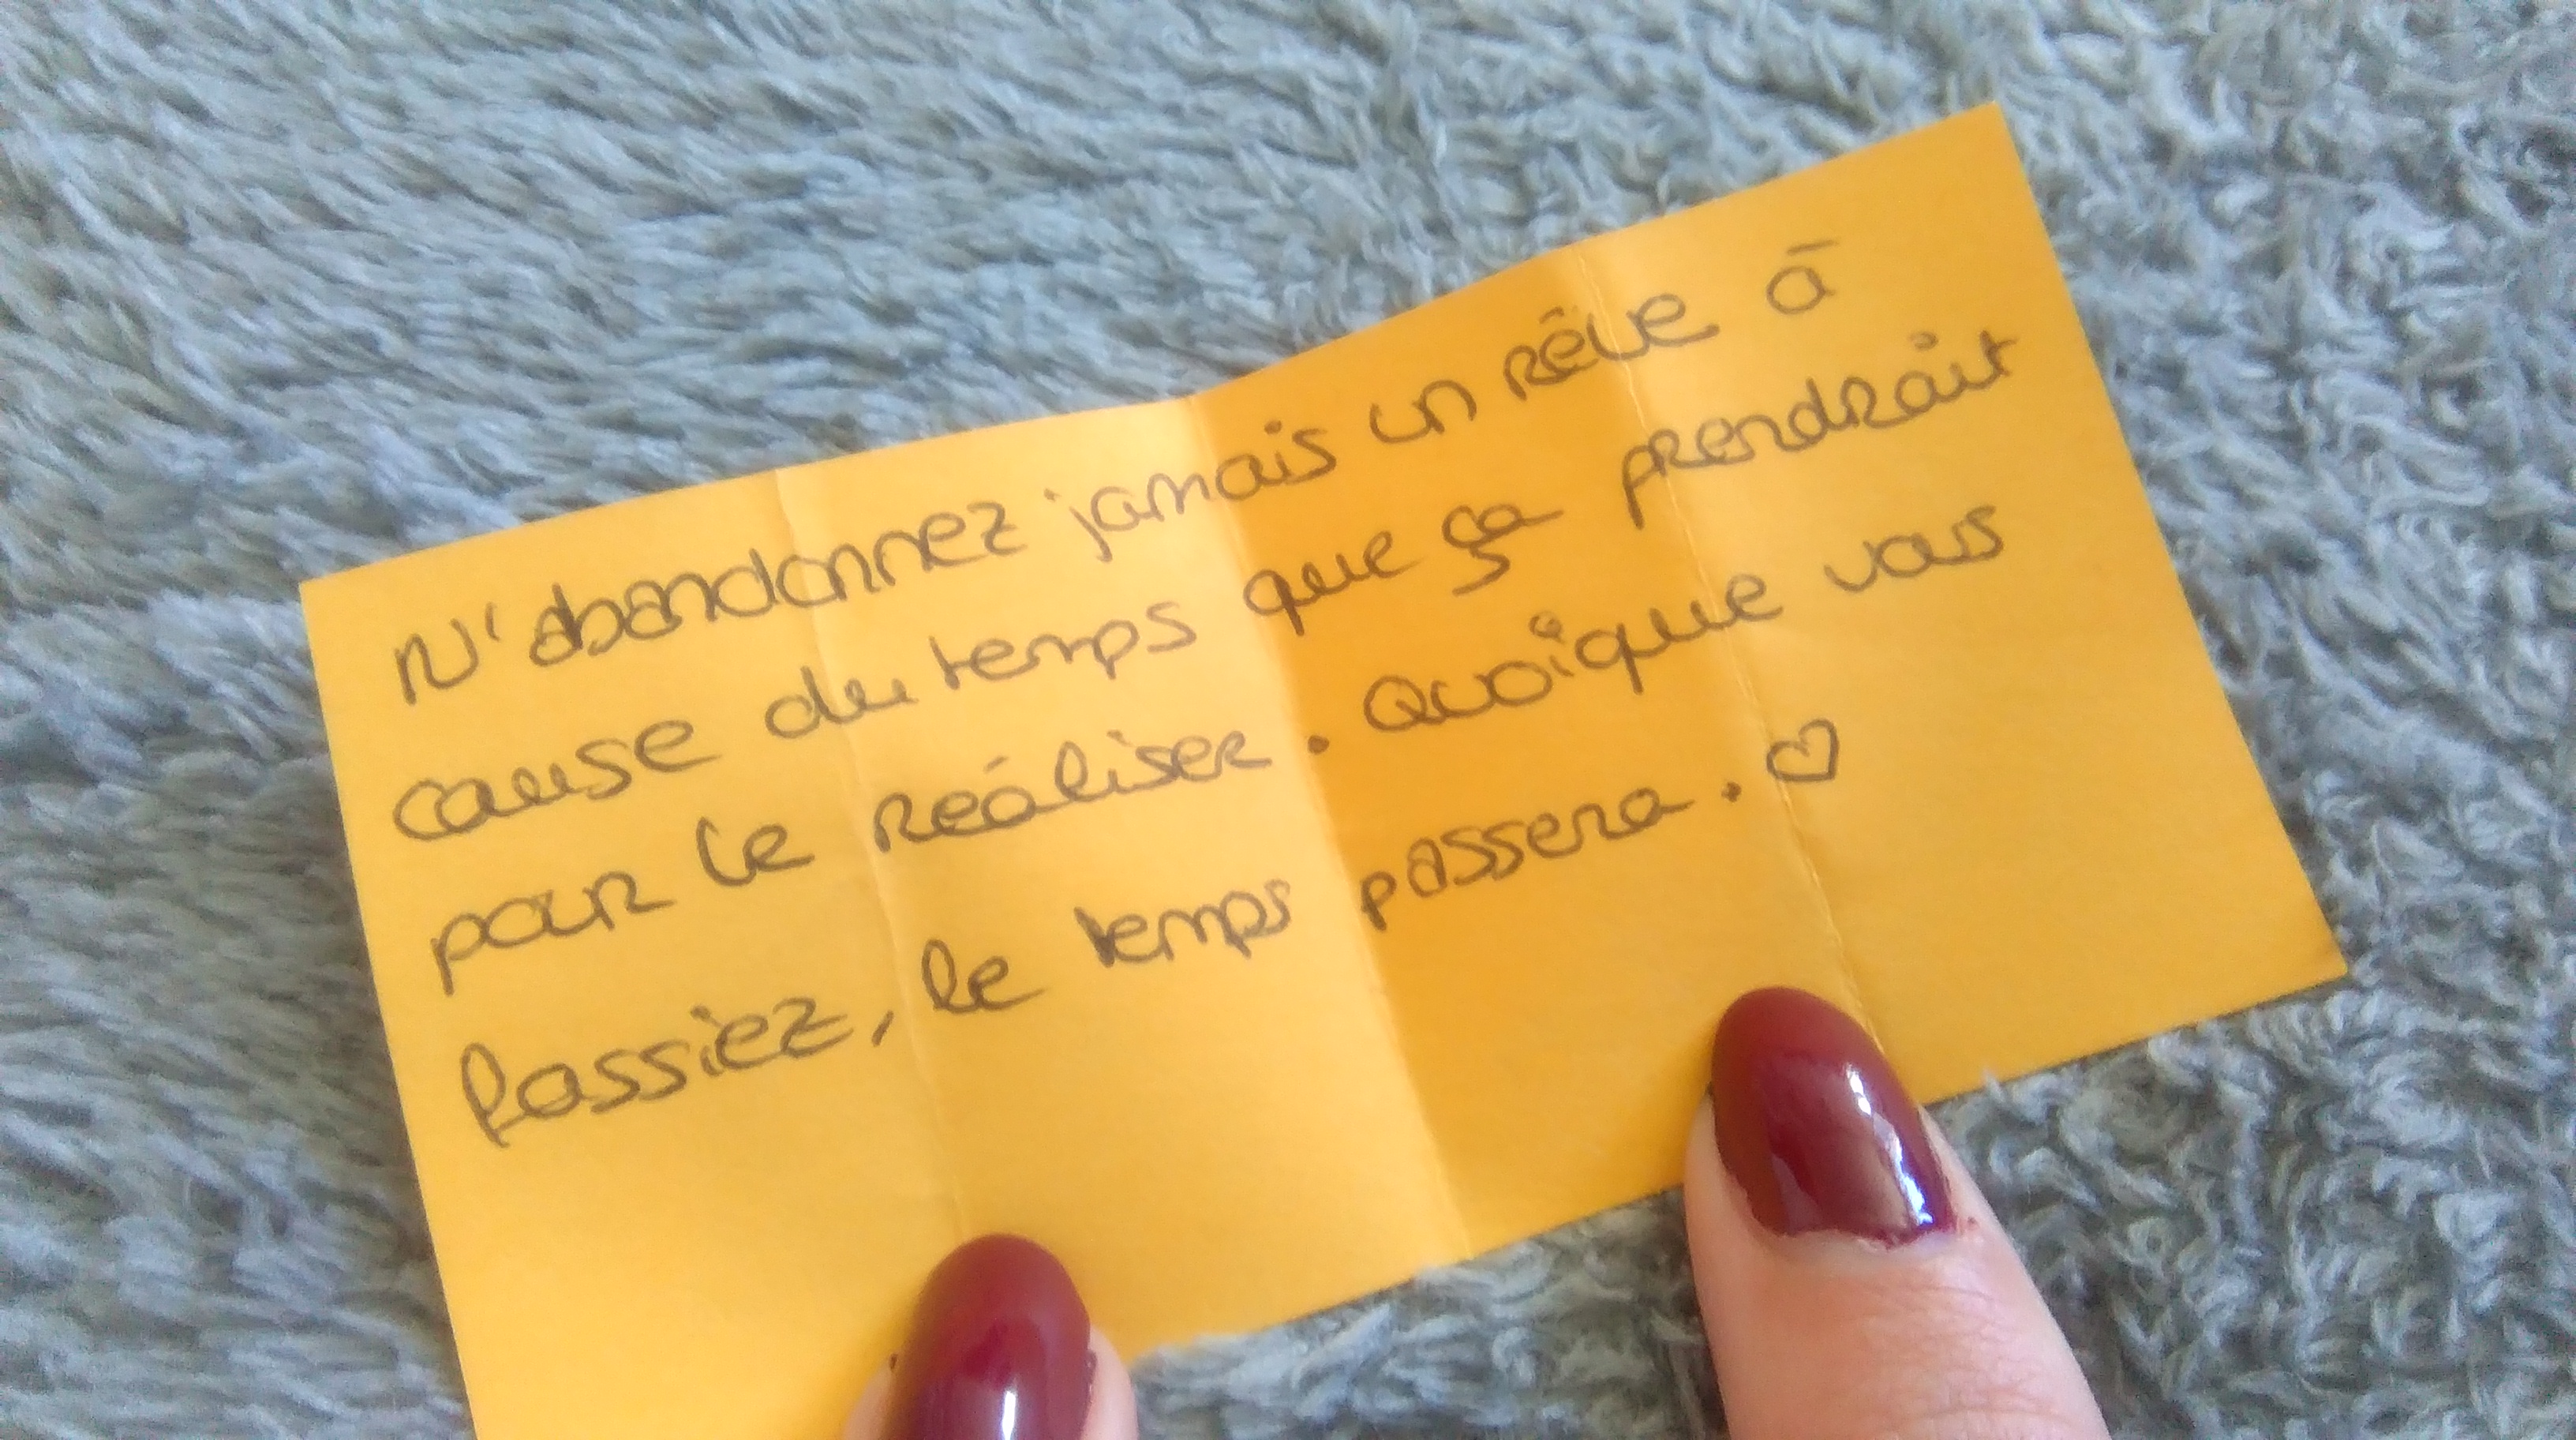 N'abandonnez jamais un rêve à
cause du temps que ça prendrait
pour le réaliser. Quoique vous
fassiez, le temps passera. ♡